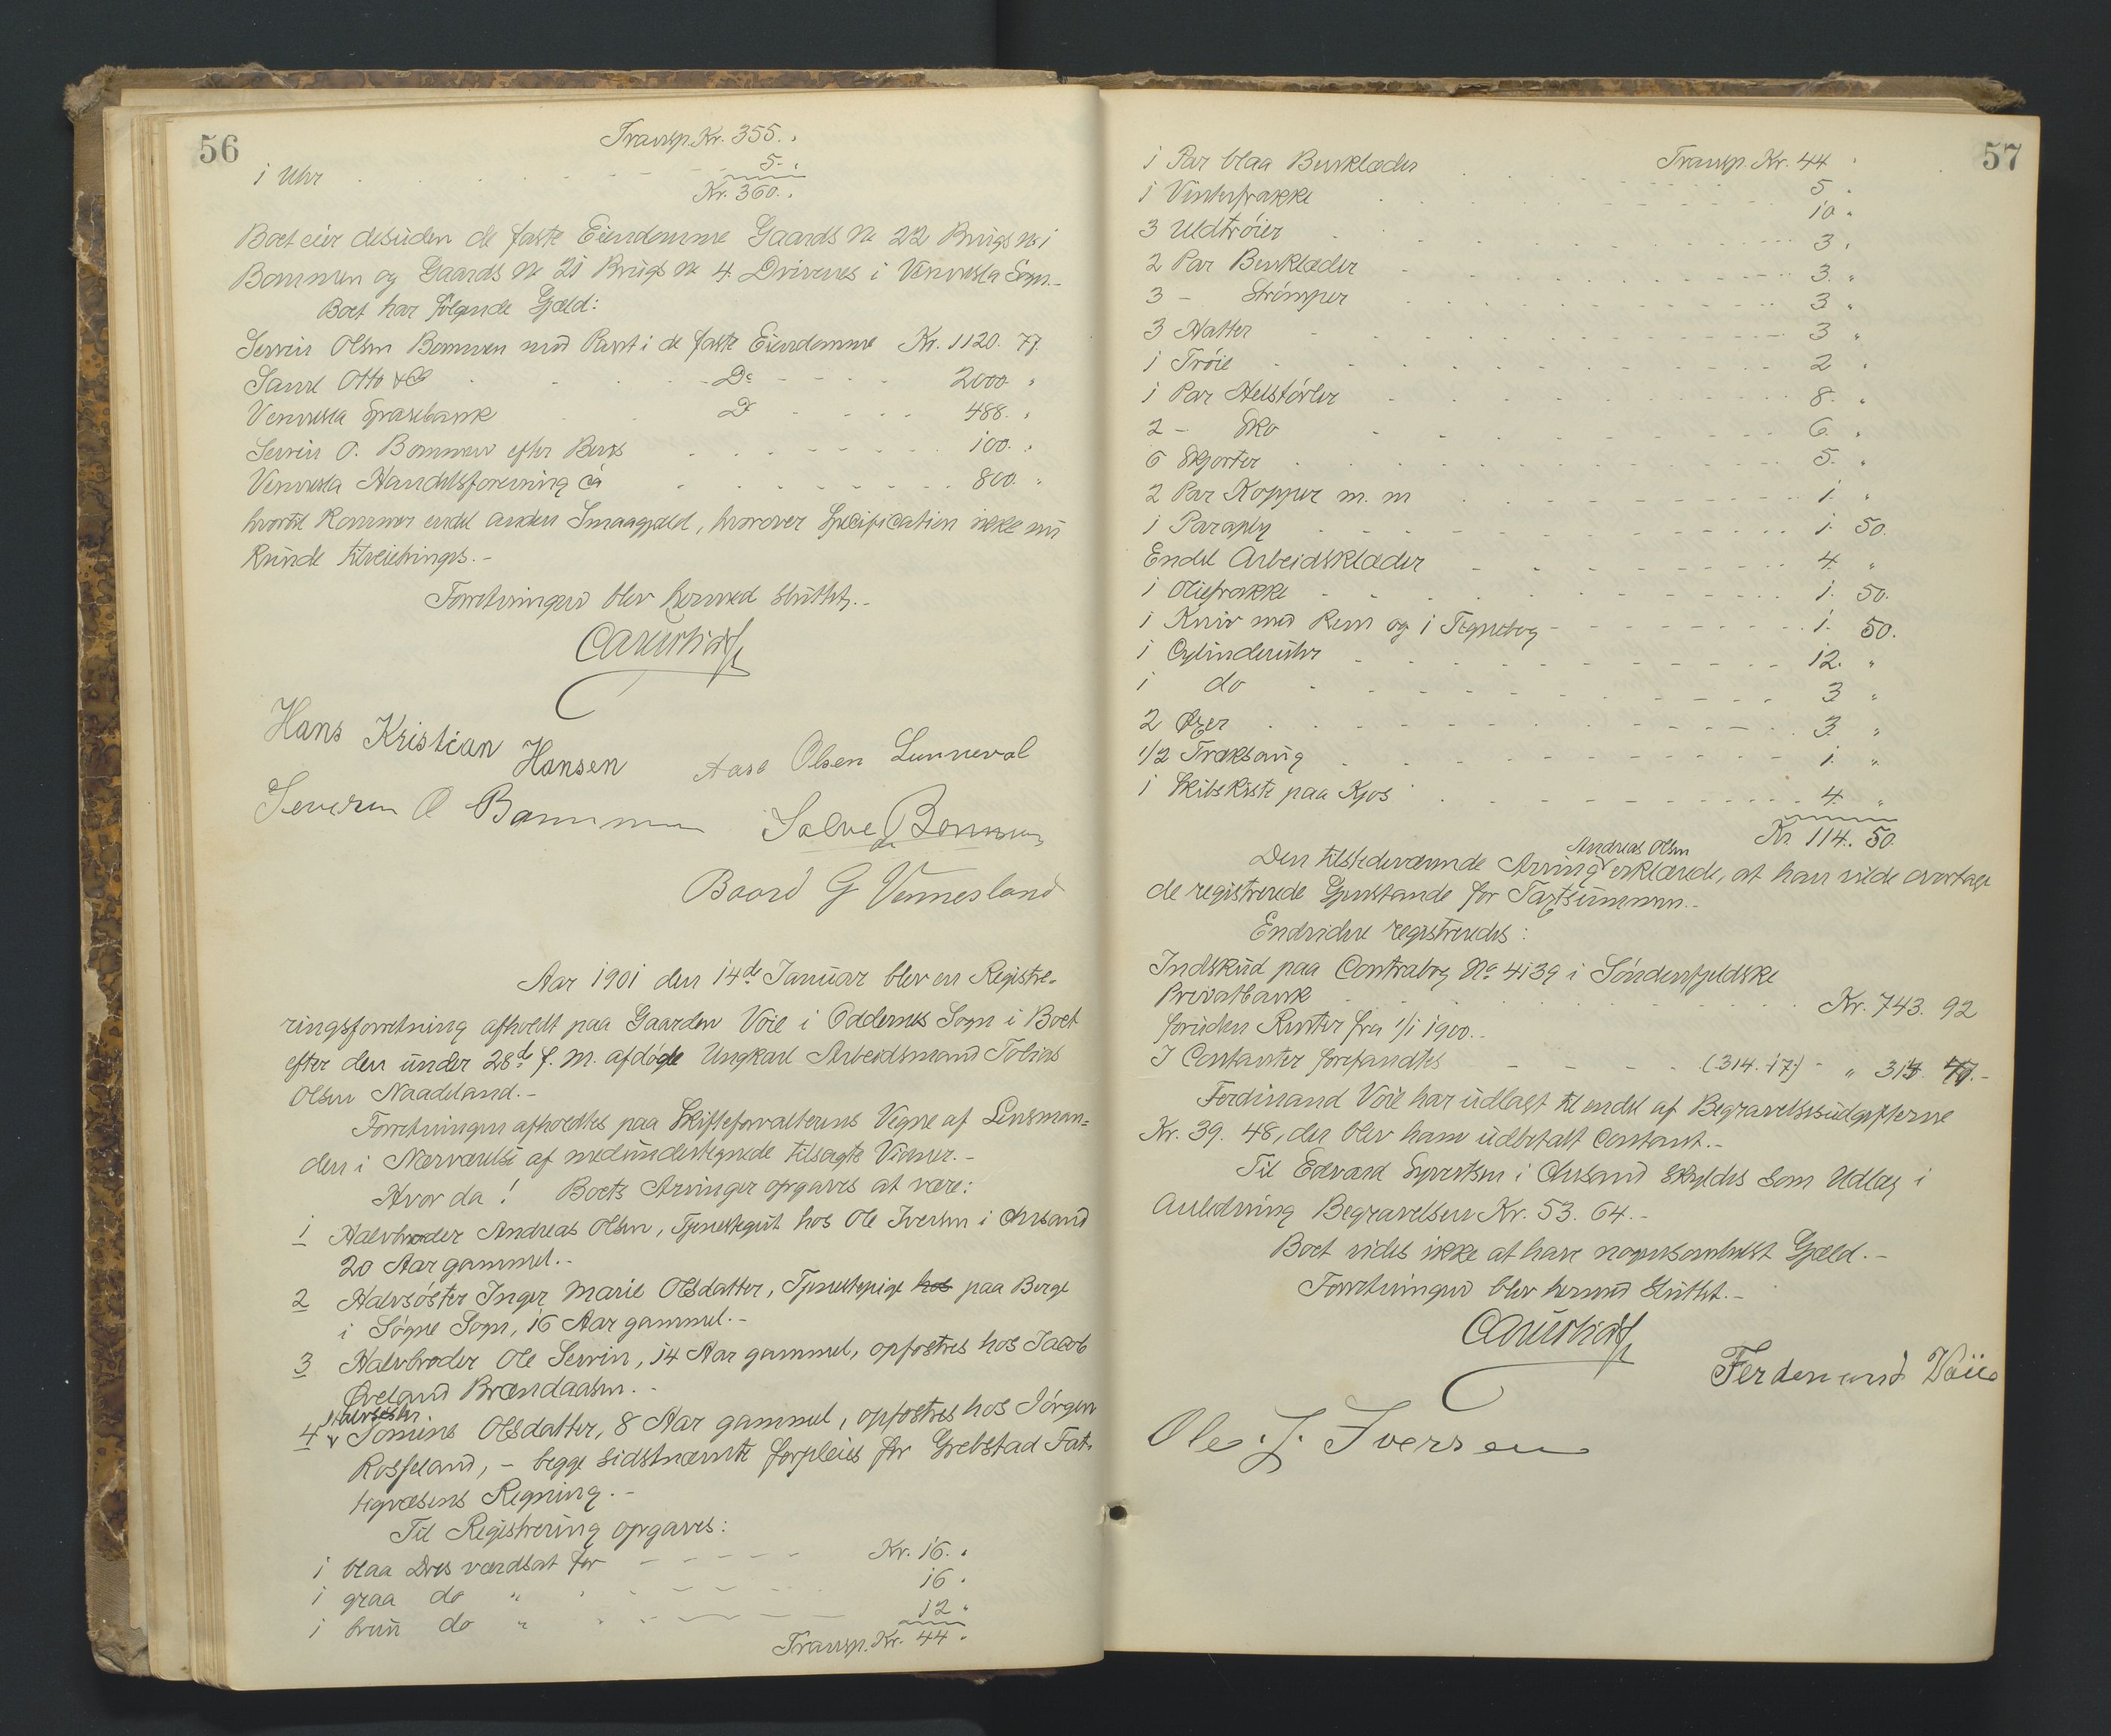 56
Transp. Kr. 355. "
1 Uhr 5. "
Kr. 360. "
Boet eier desuden de faste Eiendomme Gaards No 22 Brugs No 1
Bommen og Gaards No 21 Brugs No 4 Drivenes i Vennesla Sogn.-
Boet har følgende Gjæld:
Severin Olsen Bommen med Pant i de faste Eiendomme Kr. 1120. 77.
Saml Otto & Co - Do - 2000 "
Vennesla Sparebank Do - 488. "
Severin O. Bommen efter Bevis 100. "
Vennesla Handelsforening ca 800. "
hvortil kommer endel anden Smaagjæld, hvorover Specification ikke nu
kunde tilveiebringes.-
Forretningen blev hermed sluttet.-
Hans Kristian Hansen
Aase Olsen Lunneval
Severin O Bommen
Salve Bommen
Baard G Vennesland
Aar 1901 den 14de Januar blev en Registre-
ringsforretning afholdt paa Gaarden Voie i Oddernes Sogn i Boet
efter den under 28de f. M. afdøde Ungkarl Arbeidsmand Tobias
Olsen Naadeland.-
Forretningen afholdtes paa Skifteforvalterens Vegne af Lensman-
den i Nærværelse af medundertegnede tilsagte Vidner.-
Hvor da! Boets Arvinger opgaves at være:
1 Halvbroder Andreas Olsen, Tjenestegut hos Ole Iversen i Chrsand
20 Aar gammel.-
2 Halvsøster Inger Marie Olsdatter, Tjenestepige hos paa Berge
i Søgne Sogn, 16 Aar gammel.-
3 Halvbroder Ole Severin, 14 Aar gammel, opfostres hos Jacob
Øveland Brændaasen.-
Halvsøster
4 Tomine Olsdatter, 8 Aar gammel, opfostres hos Jørgen
Rosseland, - begge sidstnævnte forpleies for Grebstad Fat-
tigvæsens Regning.-
Til Registrering opgaves:
1 blaa Dres værdsat for Kr. 16. "
1 graa do " 16 "
1 brun do " 12 "
Transp. Kr. 44 "
57
Transp. Kr. 44 "
1 Par blaa Benklæder 5 "
1 Vinterfrakke 10 "
3 Uldtrøier 3 "
2 Par Benklæder 3. "
3 - Strømper 3 "
3 Hatter 3 "
1 Trøie 2 "
1 Par Helstøvler 8. "
2 - Sko 6. "
6 Skjorter 5. "
2 Par Kopper m. m 1. "
1 Paraply 1. 50.
Endel Arbeidsklæder 4. "
1 Oliefrakke 1. 50.
1 Kniv med Rem og 1 Tegnebog 1. 50.
1 Cylinderuhr 12. "
1 do 3 "
2 Øxer 3. "
1/2 Træksaug 1. "
1 Skibskiste paa Kjos 4. "
Kr. 114. 50.
Andreas Olsen
Den tilstedeværende Arving erklærede, at han vilde overtage
de registrerede Gjenstande for Taxtsummen.-
Endvidere registreredes:
Indskud paa Contrabog No 4139 i Søndenfjeldske
Privatbank Kr. 743. 92
foruden Renter fra 1/1 1900.-
I Contanter forefandtes (314. 17.) - " 314 17.-
Ferdinand Voie har udlagt til endel af Begravelsesudgifterne
Kr. 39. 48, der blev ham udbetalt contant.-
Til Edvard Syvertsen i Chrsand skyldes som Udlæg i
Anledning Begravelsen Kr. 53. 64.-
Boet vides ikke at have nogensomhelst Gjæld.-
Forretningen blev hermed sluttet.-
Ferdenand Voiie
Ole. J. Iversen